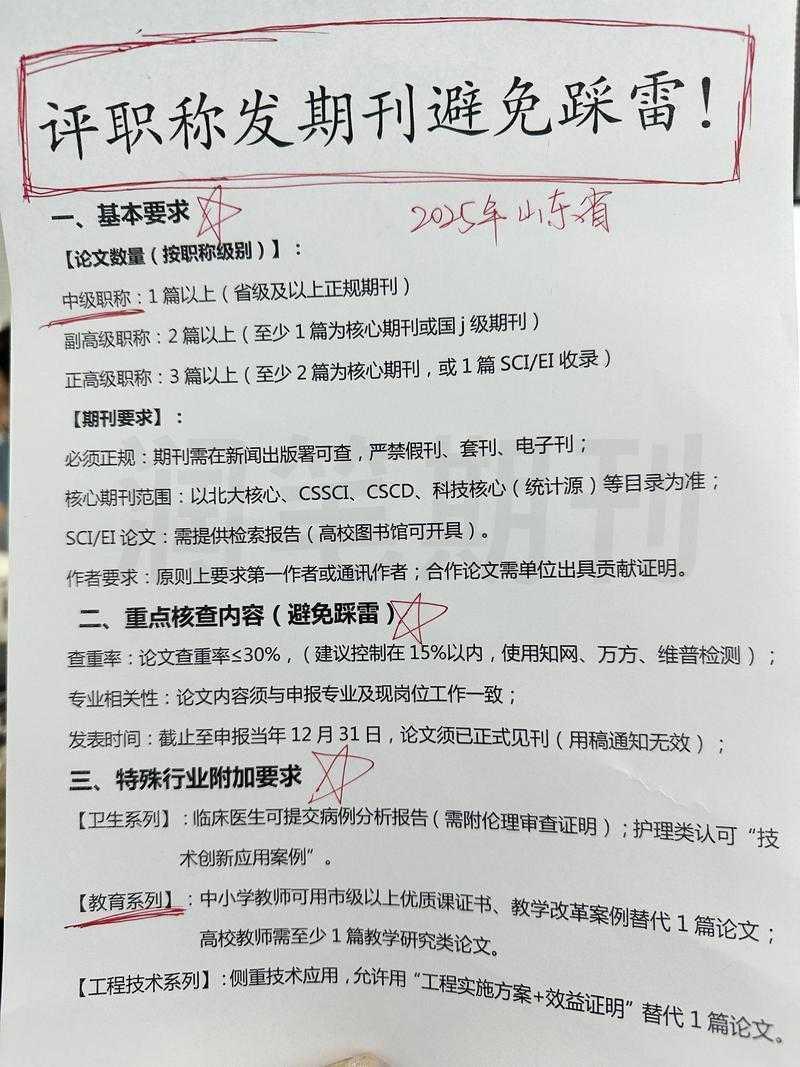 评职称发期刊避免踩雷！
一、基本要求
2025年山东省
【论文数量（按职称级别）】：
中级职称：1篇以上（省级及以上正规期刊）
副高级职称：2篇以上（至少1篇为核心期刊或国j级期刊）
正高级职称：3篇以上（至少2篇为核心期刊，或1篇SCI/EI收录）
【期刊要求】：
必须正规：期刊需在新闻出版署可查，严禁假刊、套刊、电子刊；
核心期刊范围：以北大核心、CSSCI、CSCD、科技核心（统计源）等目录为准；
SCI/EI论文：需提供检索报告（高校图书馆可开具）。
作者要求：原则上要求第一作者或通讯作者；合作论文需单位出具贡献证明。
二、重点核查内容（避免踩雷）
查重率：论文查重率≤30%，（建议控制在15%以内，使用知网、万方、维普检测）；
专业相关性：论文内容须与申报专业及现岗位工作一致；
发表时间：截止至申报当年12月31日，论文须已正式见刊（用稿通知无效）；
三、特殊行业附加要求
【卫生系列】：临床医生可提交病例分析报告（需附伦理审查证明）；护理类认可“技
术创新应用案例”。
【教育系列】：中小学教师可用市级以上优质课证书、教学改革案例替代1篇论文；
高校教师需至少1篇教学研究类论文。
【工程技术系列】：侧重技术应用，允许用“工程实施方案+效益证明”替代1篇论文。